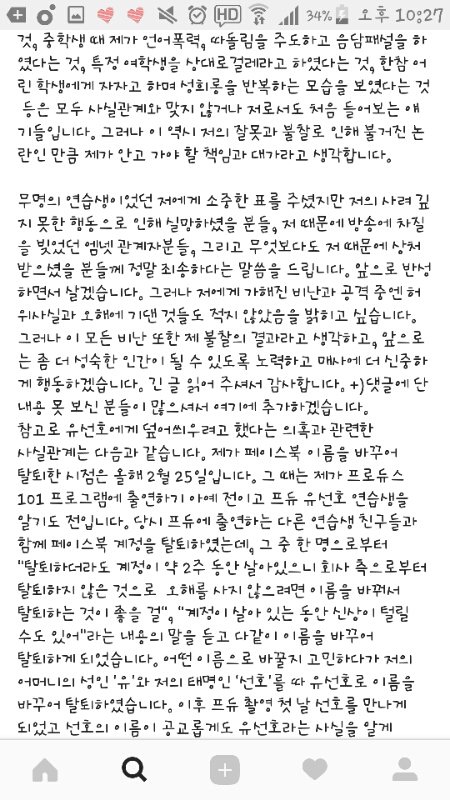 HD 34% 오후 10:27
것, 중학생 때 제가 언어폭력, 따돌림을 주도하고 음담패설을 하
였다는 것, 특정 여학생을 상대로걸레라고 하였다는 것, 한참 어
린 학생에게 자자고 하며 성희롱을 반복하는 모습을 보였다는 것
등은 모두 사실관계와 맞지 않거나 저로서도 처음 들어보는 얘
기들입니다. 그러나 이 역시 저의 잘못과 불찰로 인해 불거진 논
란인 만큼 제가 안고 가야 할 책임과 대가라고 생각합니다.
무명의 연습생이었던 저에게 소중한 표를 주셨지만 저의 사려 깊
지 못한 행동으로 인해 실망하셨을 분들, 저 때문에 방송에 차질
을 빚었던 엠넷 관계자분들, 그리고 무엇보다도 저 때문에 상처
받으셨을 분들께 정말 죄송하다는 말씀을 드립니다. 앞으로 반성
하면서 살겠습니다. 그러나 저에게 가해진 비난과 공격 중엔 허
위사실과 오해에 기댄 것들도 적지 않았음을 밝히고 싶습니다.
그러나 이 모든 비난 또한 제 불찰의 결과라고 생각하고, 앞으로
는 좀 더 성숙한 인간이 될 수 있도록 노력하고 매사에 더 신중하
게 행동하겠습니다. 긴 글 읽어 주셔서 감사합니다. +)댓글에 단
내용 못 보신 분들이 많으셔서 여기에 추가하겠습니다.
참고로 유선호에게 덮어씌우려고 했다는 의혹과 관련한
사실관계는 다음과 같습니다. 제가 페이스북 이름을 바꾸어
탈퇴한 시점은 올해 2월 25일입니다. 그 때는 제가 프로듀스
101 프로그램에 출연하기 아예 전이고 프듀 유선호 연습생을
알기도 전입니다. 당시 프듀에 출연하는 다른 연습생 친구들과
함께 페이스북 계정을 탈퇴하였는데, 그 중 한 명으로부터
"탈퇴하더라도 계정이 약 2주 동안 살아있으니 회사 측으로부터
탈퇴하지 않은 것으로 오해를 사지 않으려면 이름을 바꿔서
탈퇴하는 것이 좋을 걸", "계정이 살아 있는 동안 신상이 털릴
수도 있어"라는 내용의 말을 듣고 다같이 이름을 바꾸어
탈퇴하게 되었습니다. 어떤 이름으로 바꿀지 고민하다가 저의
어머니의 성인 '유'와 저의 태명인 '선호'를 따 유선호로 이름을
바꾸어 탈퇴하였습니다. 이후 프듀 촬영 첫 날 선호를 만나게
되었고 선호의 이름이 공교롭게도 유선호라는 사실을 알게